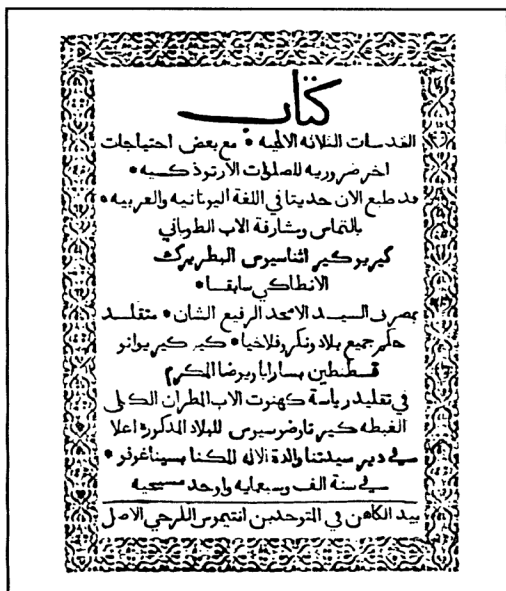 كتاب
القدسات الثلاثه الالهيه • مع بعض احتياجات
اخر ضروريه للصلوات الارتوذكسيه •
قد طبع الان حديثا في اللغة اليونانيه والعربيه •
بالتماس ومشارفة الاب الطوباني
كيريو كير اثناسيوس البطريرك
الانطاكي سابقا •
بمصرف السيد الامجد الرفيع الشان • متقلد
حكم جميع بلاد ونكروفلاخيا • كير كير يوانو
قسطنطين بسارابا ويوضا المكرم
في تقليد رياسة كهنوت الاب المطران الكلي
الغبطه كير ثاوضوسيوس للبلاد المذكورة اعلا
في دير سيدتنا والدة الاله المكنا بسيناغوفو •
في سنة الف وسبعمايه واوحد مسيحيه
بيد الكاهن في المتوحدين انتيموس الكرجي الاصل